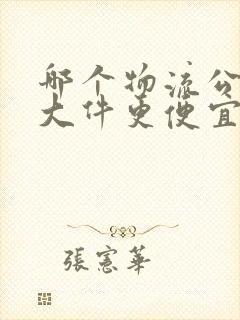 哪个物流公
大件更便宜
張憲華